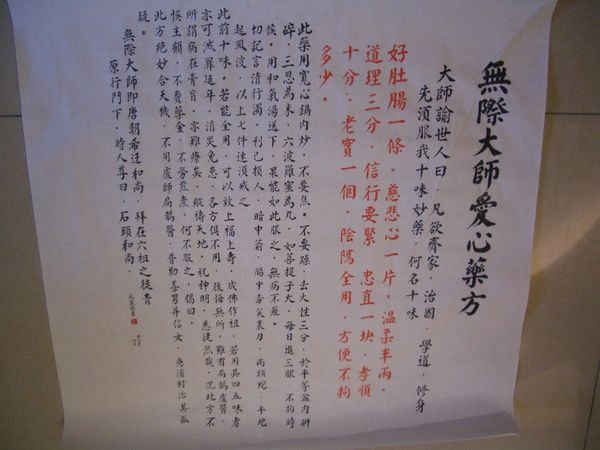 無際大師愛心藥方
大師諭世人曰。凡欲齊家。治國。學道。修身
先須服我十味妙藥。何名十味
好肚腸一條。慈悲心一片。溫柔半兩。
道理三分。信行要緊 忠直一塊。孝順
十分。老實一個。陰隲全用。方便不拘
多少。
此藥用寬心鍋內炒。不要焦。不要躁。去火性三分。於平等盆內研
碎。三思為末。六波羅蜜為丸。如菩提子大。每日進三服。不拘時
候。用和氣湯送下。果能如此服之。無病不瘥。
切記言清行濁。利己損人。暗中箭。腸中毒笑裏刀。兩頭蛇。平地
起風波。以上七件速須戒之
此前十味。若能全用。可以致上福上壽。成佛作祖。若用其四五味者
亦可滅罪延年。消災免患。各方俱不用。後悔無所。雖有扁鵲盧醫。
所謂病在膏肓。亦難療矣。縱禱天地。祝神明。悉徒然哉。況此方不
悮主顧。不費藥金。不勞煎煮。何不服之。偈曰。
此方絕妙合天機。不用盧師扁鵲醫。普勸善男并信女。急須對治莫狐
疑。
無際大師即唐朝希迁和尚。拜在六祖之徒青
原行門下。時人尊曰。石頭和尚。